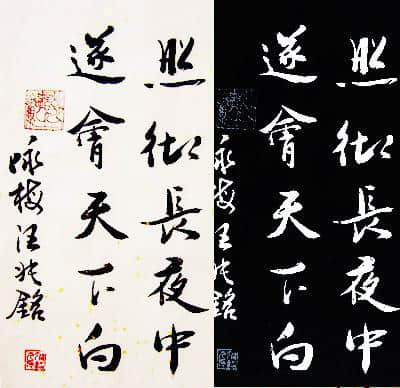 照徹長夜中
遂會天下白
咏梅汪兆銘
照徹長夜中
遂會天下白
咏梅汪兆銘